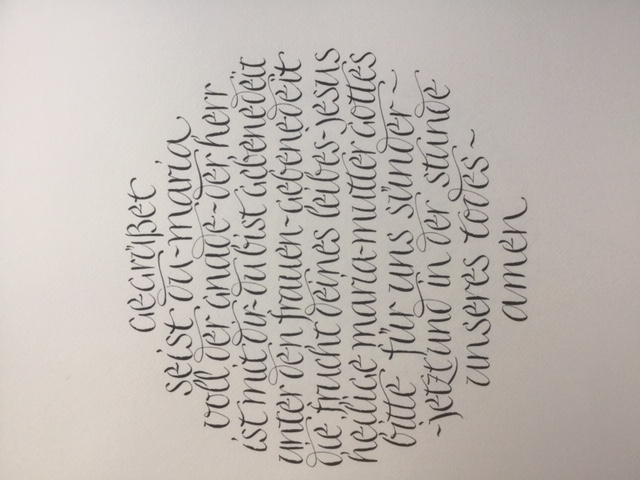 gegrüßet
seist du~maria
voll der gnade~der herr
ist mit dir~du bist gebenedeit
unter den frauen~gebenedeit
die frucht deines leibes~jesus
heilige maria~mutter gottes
bitte für uns sünder~
~jetzt und in der stunde
unseres todes~
amen